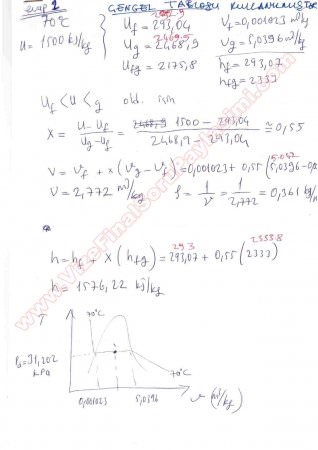 cevap 2 ÇENGEL TABLOSU KULLANILMIŞTIR
70°C
u = 1500 kJ/kg
292.9
U_f = 293,04 V_f = 0,001023 m³/kg
2469.5
U_g = 2468,9 V_g = 5,0396 m³/kg
U_fg = 2175,8 h_f = 293,07
h_fg = 2333
U_f < U < U_g old. için
X = (U - U_f) / (U_g - U_f) = (1500 - 293,04) / (2468,9 - 293,04) ≅ 0,55
V = V_f + x (V_g - V_f) = 0,001023 + 0,55 (5,0396 - 0,0
5.042
V = 2,772 m³/kg ρ = 1/V = 1/2,772 = 0,361 kg/
293 2333.8
h = h_f + x (h_fg) = 293,07 + 0,55 (2333)
h = 1576,22 kJ/kg
T
70°C
P_s = 31,202
kPa
70°C
0,001023 5,0396 v (m³/kg)
www.VizeFinalSoruPaylasimi.com